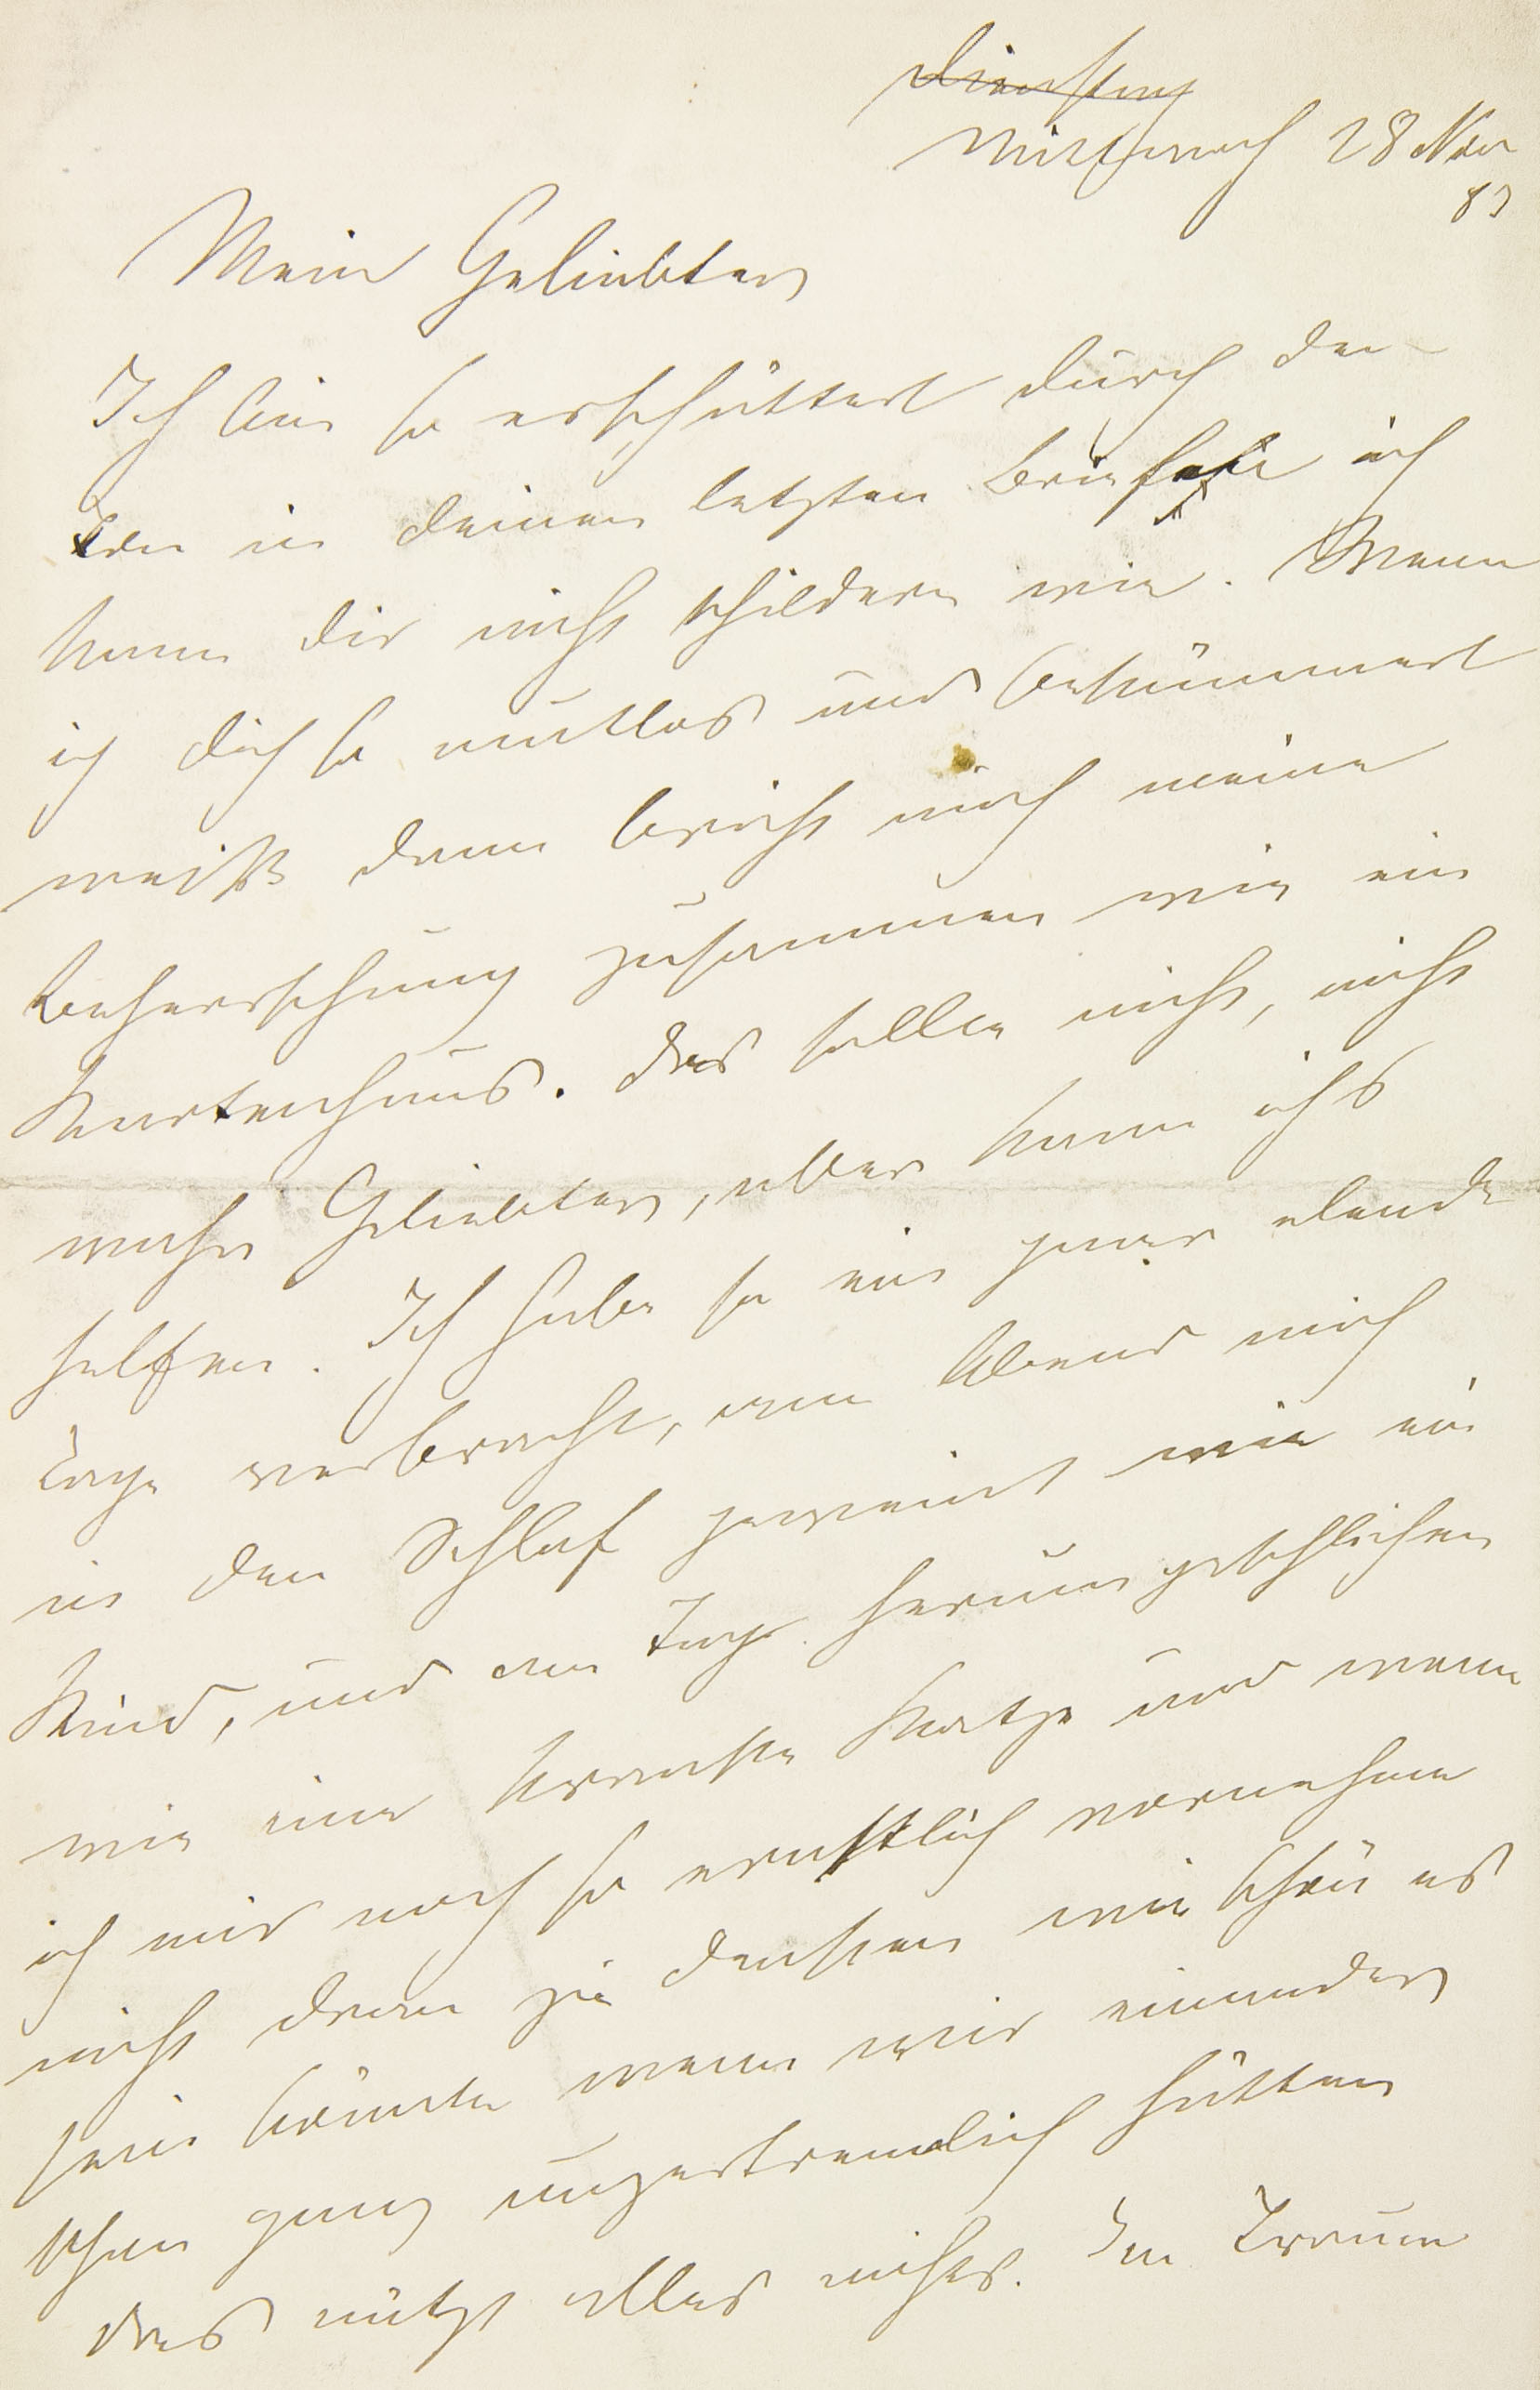 Dienstag
Mittwoch 28 Nov
83
Mein Geliebter
Ich bin so erschüttert durch den
Ton in deinen letzten Briefen ich
kann dir nicht schildern wie. Wenn
ich dich so mutlos und bekümmert
weiß dann bricht mich meine
Beherrschung zusammen wie ein
Kartenhaus. Das sollte nicht, nicht
wahr Geliebter, aber kann ichs
helfen. Ich habe so ein paar elende
Tage verbracht, am Abend mich
in den Schlaf geweint wie ein
Kind, und am Tage herumgeschlichen
wie eine kranke Katze und wenn
ich mir noch so ernstlich vornehme
nicht dran zu denken wie schön es
sein könnte wenn wir einander
schon ganz unzertrennlich hätten
das nützt alles nichts. Im Traum